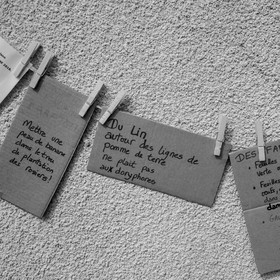 Mettre une
peau de banane
dans le trou
de plantation
des rosiers!
Du Lin
autour des lignes de
pomme de terre
ne plait pas
aux doryphores
DES
Feuilles
Feuil
dans